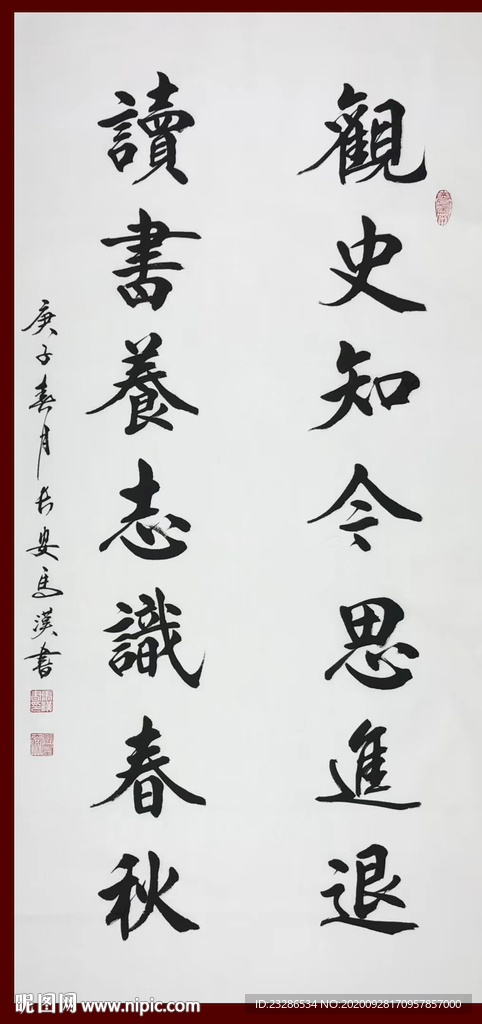 觀史知今思進退
讀書養志識春秋
庚子春月長安馬漢書
昵图网 www.nipic.com
ID:23286534 NO:20200928170957857000